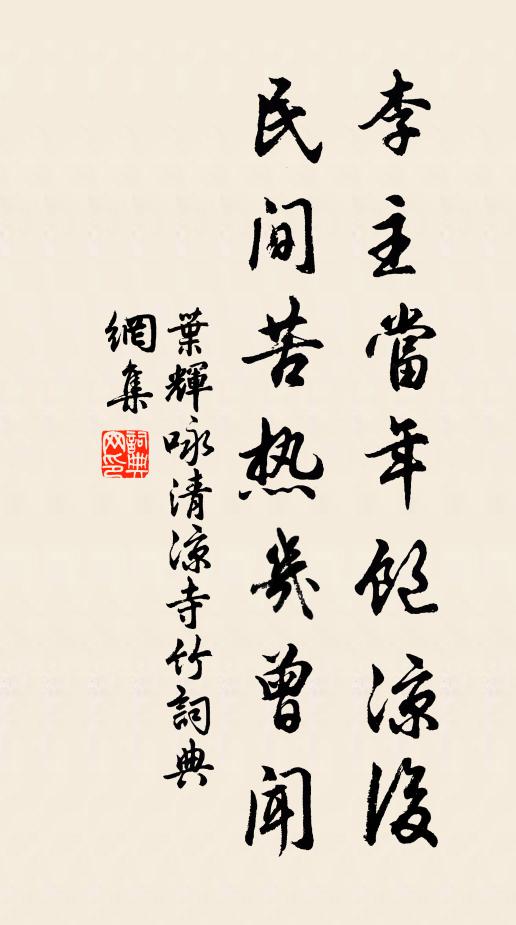 李主當年飽凉後
民间苦热幾曾闻
葉輝咏清凉寺竹詞典
網集
詞典網印